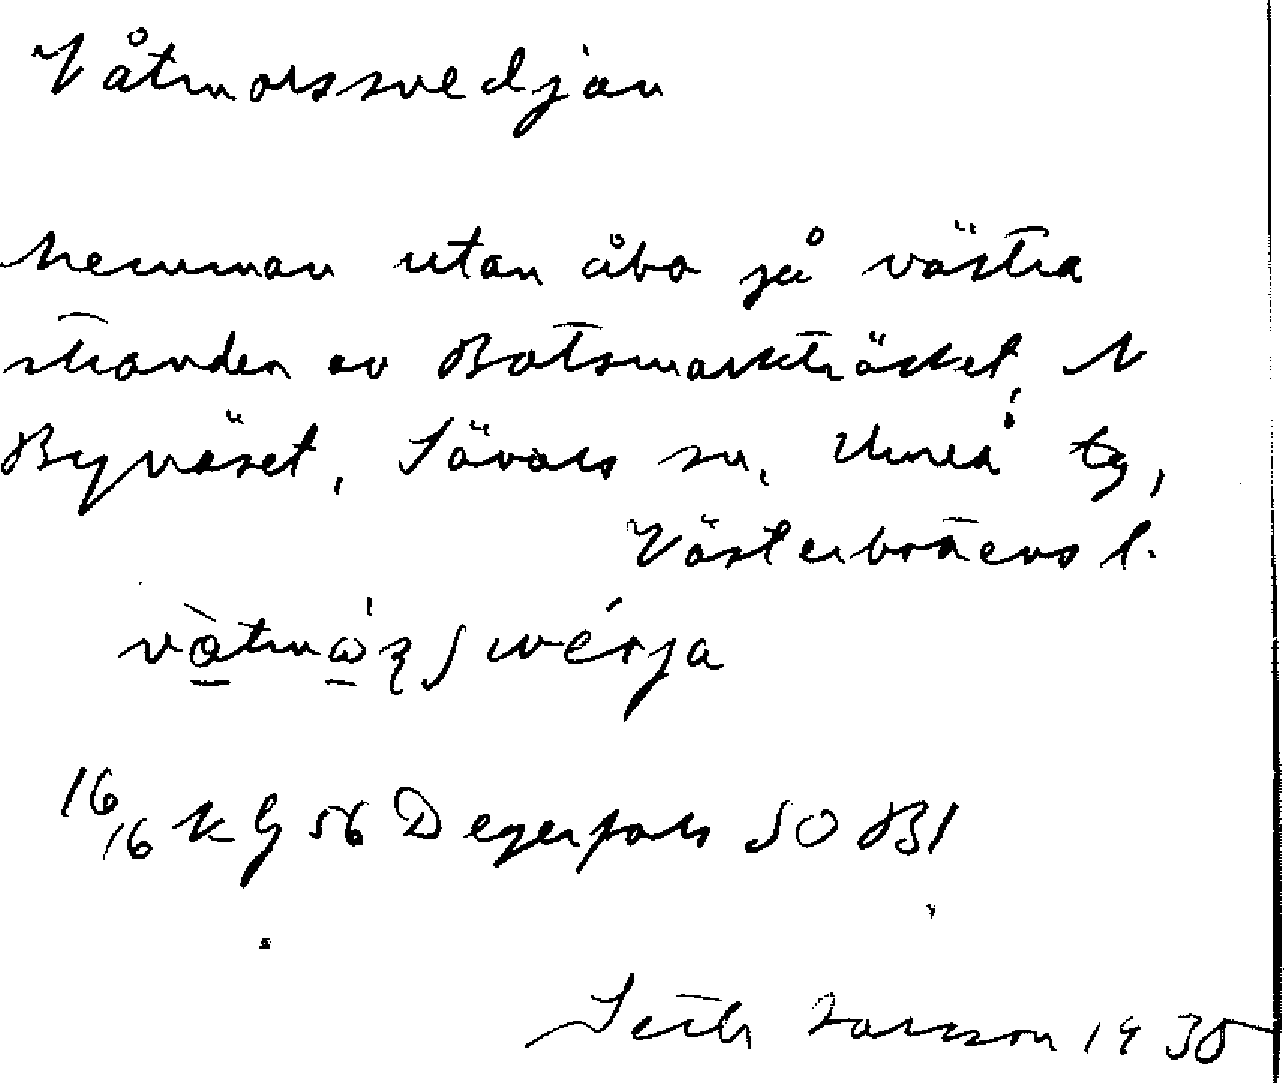 Våtmorssvedjan
Hemman utan åbo på västra
stranden av Botsmarkträsket, N
Byväset, Sävars sn, Umeå tg,
Västerbottens l.
16/16 k G 56 Degerfors SO Bl
Seth Larsson 1938